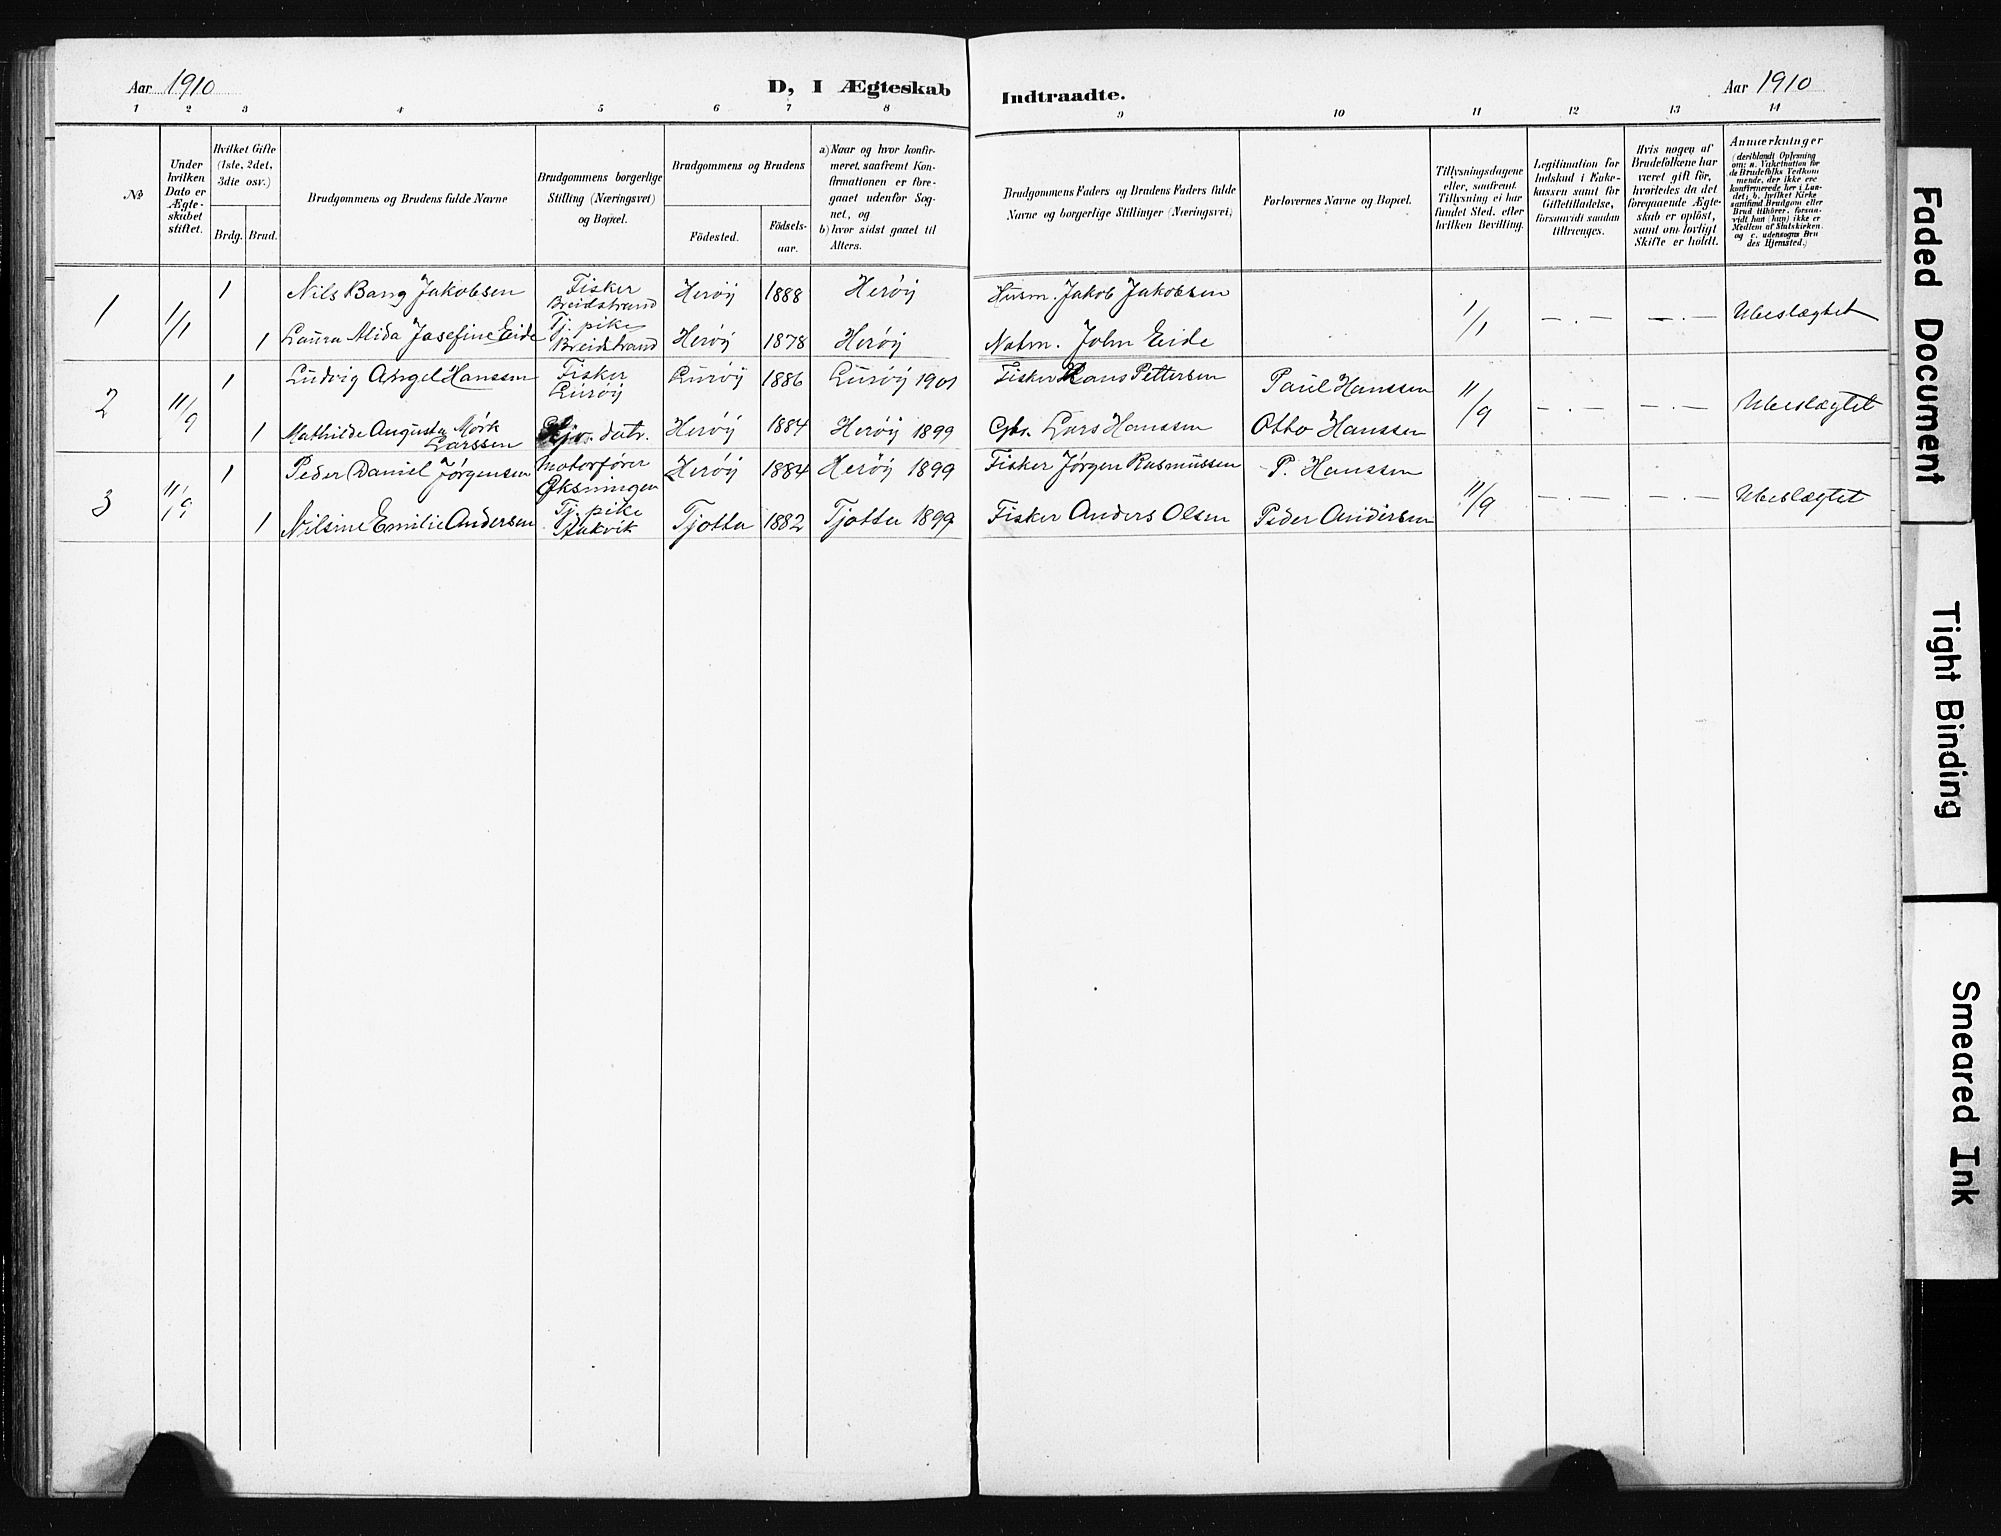 Aar 1910
D, I Ægteskab
Indtraadte.
Aar 1910
1 2 3 4 5 6 7 8 9 10 11 12 13 14
№
Under hvilken Dato er Ægteskabet stiftet.
Hvilket Gifte (1ste, 2det, 3die osv.)
Brdg. Brud.
Brudgommens og Brudens fulde Navne
Brudgommens borgerlige Stilling (Næringsvei) og Bopæl.
Brudgommens og Brudens
Födested.
Födselsaar.
a) Naar og hvor konfirmeret, saafremt Konfirmationen er foregaaet udenfor Sognet, og
b) hvor sidst gaaet til Alters.
Brudgommens Faders og Brudens Faders fulde Navne og borgerlige Stillinger (Næringsvei)
Forlovernes Navne og Bopæl.
Tillysningsdagene eller, saafremt Tillysning ei har fundet Sted, efter hvilken Bevilling.
Legitimation for Indskud i Enkekassen samt for Giftetilladelse, forsaavidt saadan tiltrænges.
Hvis nogen af Brudefolkene har været gift för, hvorledes da det foregaaende Ægteskab er oplöst, samt om lovligt Skifte er holdt.
Anmærkninger
1 1/1 1 Nils Bang Jakobsen Fisker Breidstrand Herøy 1888 Herøy Husm. Jakob Jakobsen 1/1 — . — — . — Ubeslægtet
1 Laura Alida Josefine Eide Tj. pike Breidstrand Herøy 1878 Herøy Notm. John Eide
2 11/9 1 Ludvig Angel Hanssen Fisker Lurøy Lurøy 1886 Lurøy 1901 Fisker Hans Pettersen Paul Hanssen 11/9 — . — — . — Ubeslægtet
1 Mathilde Augusta Mørk Larssen datr. Herøy 1884 Herøy 1899 Gbr. Lars Hanssen Otto Hanssen
3 11/9 1 Peder Daniel Jørgensen Motorfører Øksningen Herøy 1884 Herøy 1899 Fisker Jørgen Rasmussen P. Hanssen 11/9 — . — — . — Ubeslægtet
1 Nilsine Emilie Andersen Tj. pike Tjotta 1882 Tjotta 1899 Fisker Anders Olsen Peder Andersen
Faded Document
Tight Binding
Smeared Ink